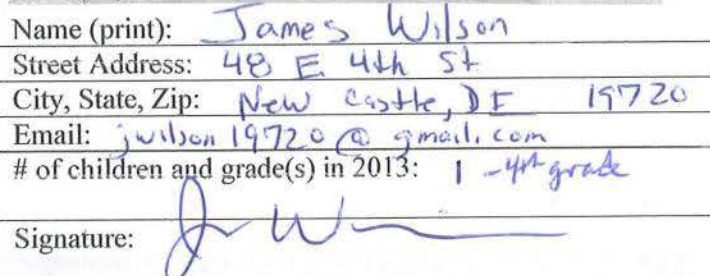 Name (print): James Wilson
Street Address: 48 E 4th St
City, State, Zip: New Castle, DE 19720
Email: jwilson19720@gmail.com
# of children and grade(s) in 2013: 1 - 4th grade
Signature: J W